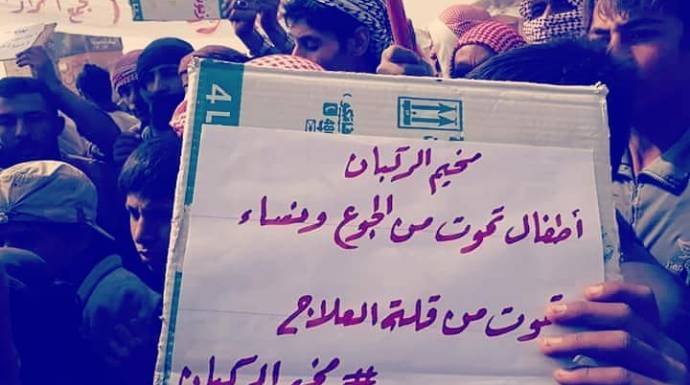 4L
مخيم الركبان
أطفال تموت من الجوع ونساء
تموت من قلة العلاج
# مخيم الركبان